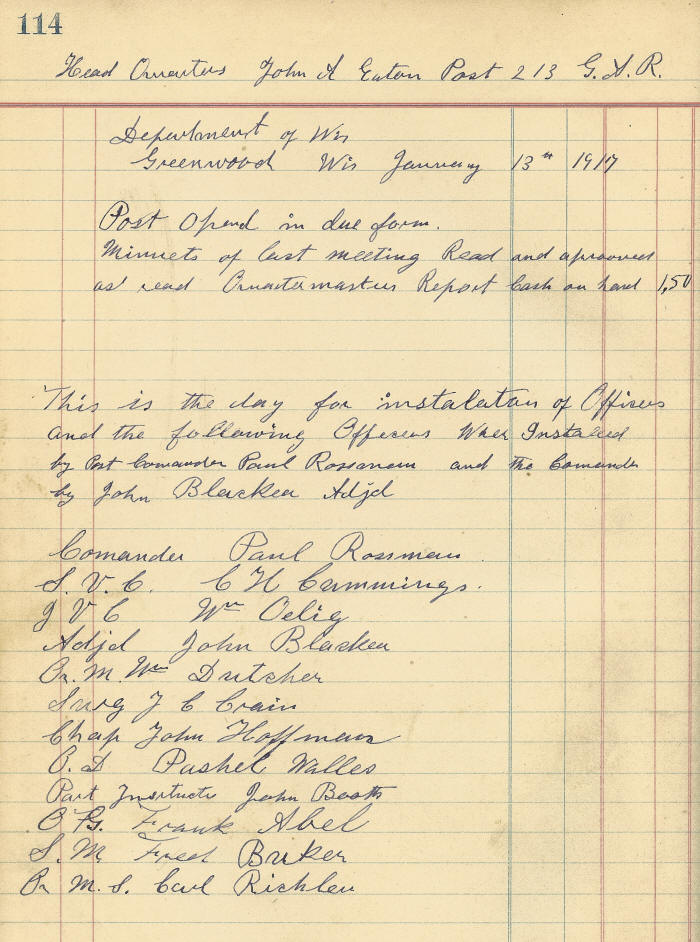 114
Head Quarters John A Eaton Post 213 G.A.R.
Department of Wis
Greenwood Wis January 13th 1917
Post Opend in due form.
Minnets of last meeting Read and aprooved
as read Quartermasters Report Cash on hand 1,50
This is the day for instalation of Officers
and the following Officers Wher Instaled
by Post Comander Paul Rossman and the Comander
by John Blacken Adjd
Comander Paul Rossman
S. V. C. C H Cummings.
J V C Wm Oelig
Adjd John Blacken
Qr. M. Wm Dutcher
Surg J C Crain
Chap John Hoffman
O. d Pashel Walles
Part Instructr John Booth
O G. Frank Abel
S. M Fred Buker
Qr M. S. Carl Richlen